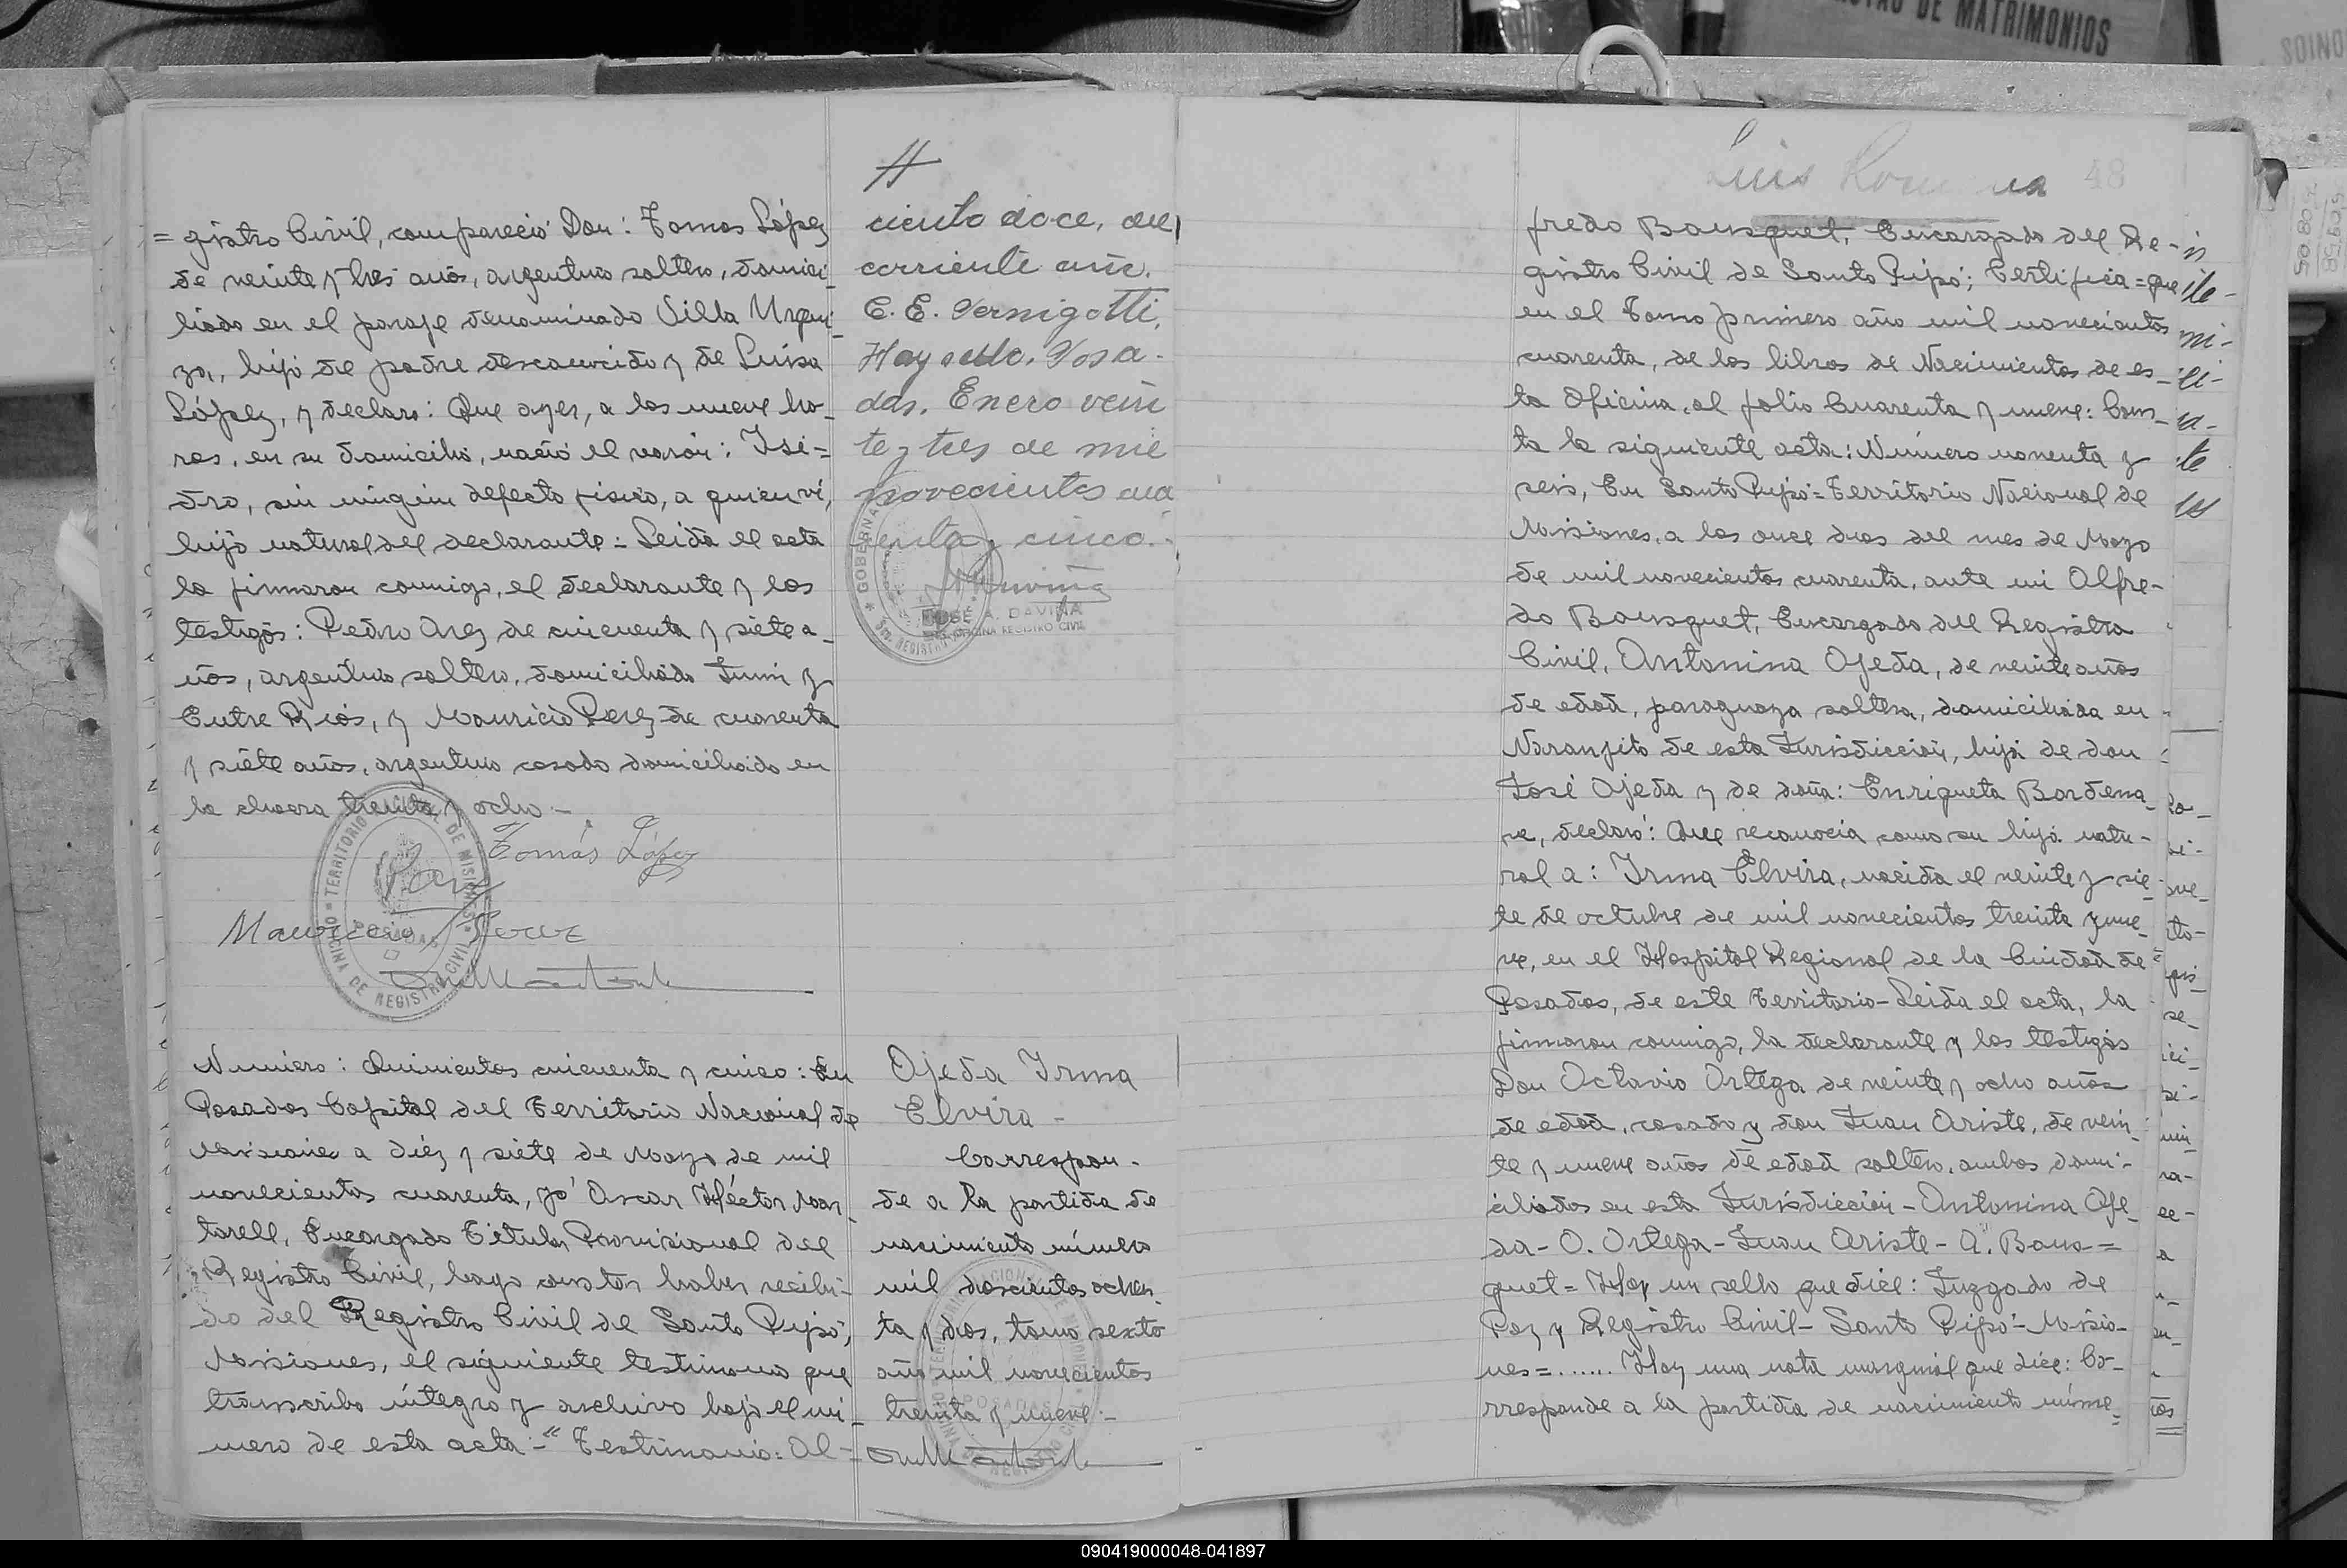 DE MATRIMONIOS
= gistro Civil, compareció Don: Tomas López
de veinte y tres años, argentino soltero, domici-
liado en el paraje denominado Villa Urqui-
za, hijo de padre desconocido y de Luisa
López, y declaro: Que ayer, a las nueve ho-
ras, en su domicilio, nació el varón: Isi=
dro, sin ningún defecto fisico, a quien ví,
hijo natural del declarante = Leida el acta
la firmaron conmigo, el declarante y los
testigos: Pedro Arez de cincuenta y siete a-
ños, argentino soltero, domiciliado Junin y
Entre Rios, y Mauricio Perez de cuarenta
y siete años, argentino casado domiciliado en
la chacra treinta y ocho -
Tomás López
Mauricio Perez
TERRITORIO NACIONAL DE MISIONES
OFICINA DE REGISTRO CIVIL
POSADAS
Numero: Quinientos cincuenta y cinco: En
Posadas Capital del Territorio Nacional de
Misiones a diez y siete de Mayo de mil
novecientos cuarenta, yo Oscar Héctor Mar-
torell, Encargado Titular Provisional del
Registro Civil, hago constar haber recibi-
do del Registro Civil de Santo Pipó,
Misiones, el siguiente testimonio que
transcribo íntegro y archivo bajo el nú-
mero de esta acta =" Testimonio: Al=
ciento doce, del
corriente año.
C. E. Vernigotti.
Hay sello. Posa-
das, Enero vein
te y tres de mil
novecientos cua
renta y cinco.-
JOSÉ A. DAVIÑA
REGISTRO CIVIL
Ojeda Irma
Elvira -
Correspon-
de a la partida de
nacimiento número
mil doscientos ochen-
ta y dos, tomo sexto
año mil novecientos
treinta y nueve.-
Luis
48
fredo Bousquet, Encargado del Re-
gistro Civil de Santo Pipó; Certifica = que
en el Tomo primero año mil novecientos
cuarenta, de los libros de Nacimientos de es-
ta Oficina, al folio Cuarenta y nueve: Cons-
ta la siguiente acta: Número noventa y
seis, En Santo Pipó = Territorio Nacional de
Misiones, a los once dias del mes de Mayo
de mil novecientos cuarenta, ante mi Alfre-
do Bousquet, Encargado del Registro
Civil, Antonina Ojeda, de veinte años
de edad, paraguaya soltera, domiciliada en
Naranjito de esta Jurisdicción, hija de don
José Ojeda y de doña: Enriqueta Bordena-
ve, declaró: Que reconocia como su hija natu-
ral a: Irma Elvira, nacida el veinte y sie-
te de octubre de mil novecientos treinta y nue-
ve, en el Hospital Regional de la Ciudad de
Posadas, de este Territorio - Leida el acta, la
firmaron conmigo, la declarante y los testigos
Don Octavio Ortega de veinte y ocho años
de edad, casado y don Juan Ariste, de vein-
te y nueve años de edad soltero, ambos domi-
ciliados en esta Jurisdicción - Antonina Oje-
da - O. Ortega - Juan Ariste - A. Bous=
quet = Hay un sello que dice: Juzgado de
Paz y Registro Civil - Santo Pipó - Misio-
nes = ...... Hay una nota marginal que dice: Co-
rresponde a la partida de nacimiento núme-
090419000048-041897